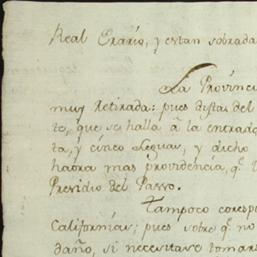 Real Erario, y estan sobrada
La Provinci
muy retirada: pues dista del
te, que se halla â la entrada
ta, y cinco Leguas, y dicho
havra mas providencia, q.e
Presidio del Passo.
Tampoco coresp
Californias; pues sobre q.e no
daño, si necesitase tomars